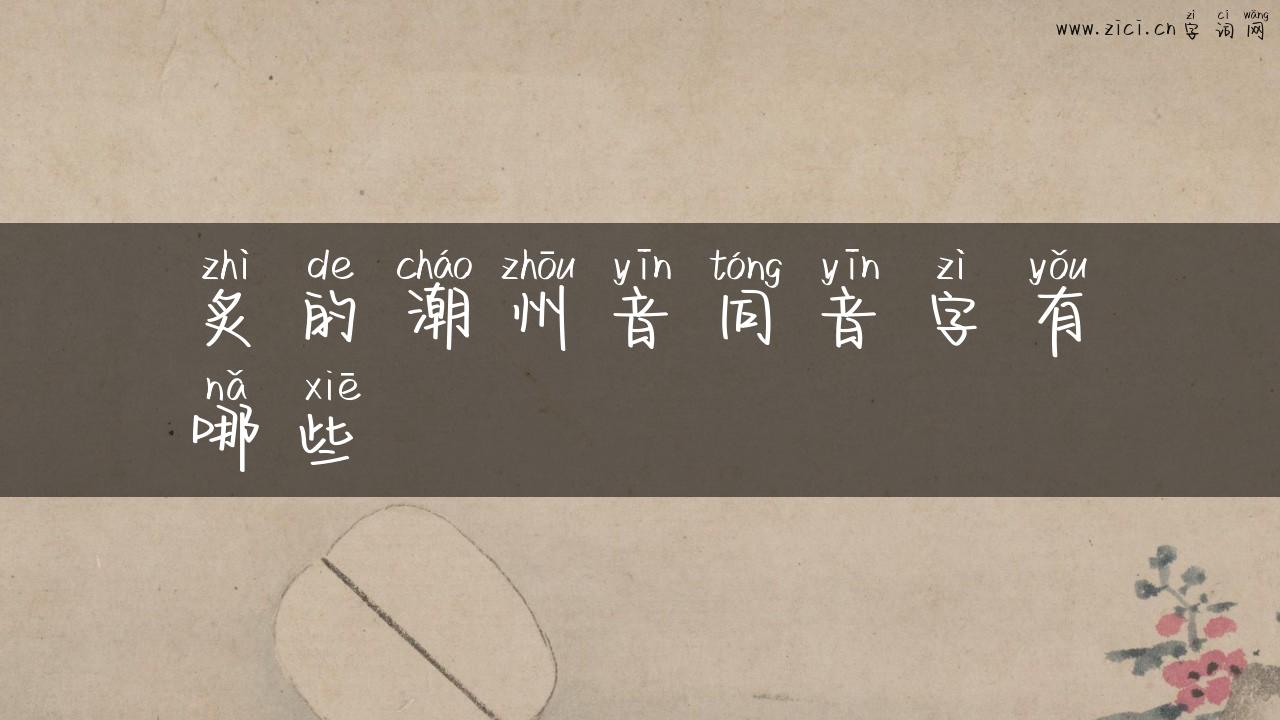 zì cí wǎng
www.zici.cn字词网
zhì de cháo zhōu yīn tóng yīn zì yǒu
炙的潮州音同音字有
nǎ xiē
哪些